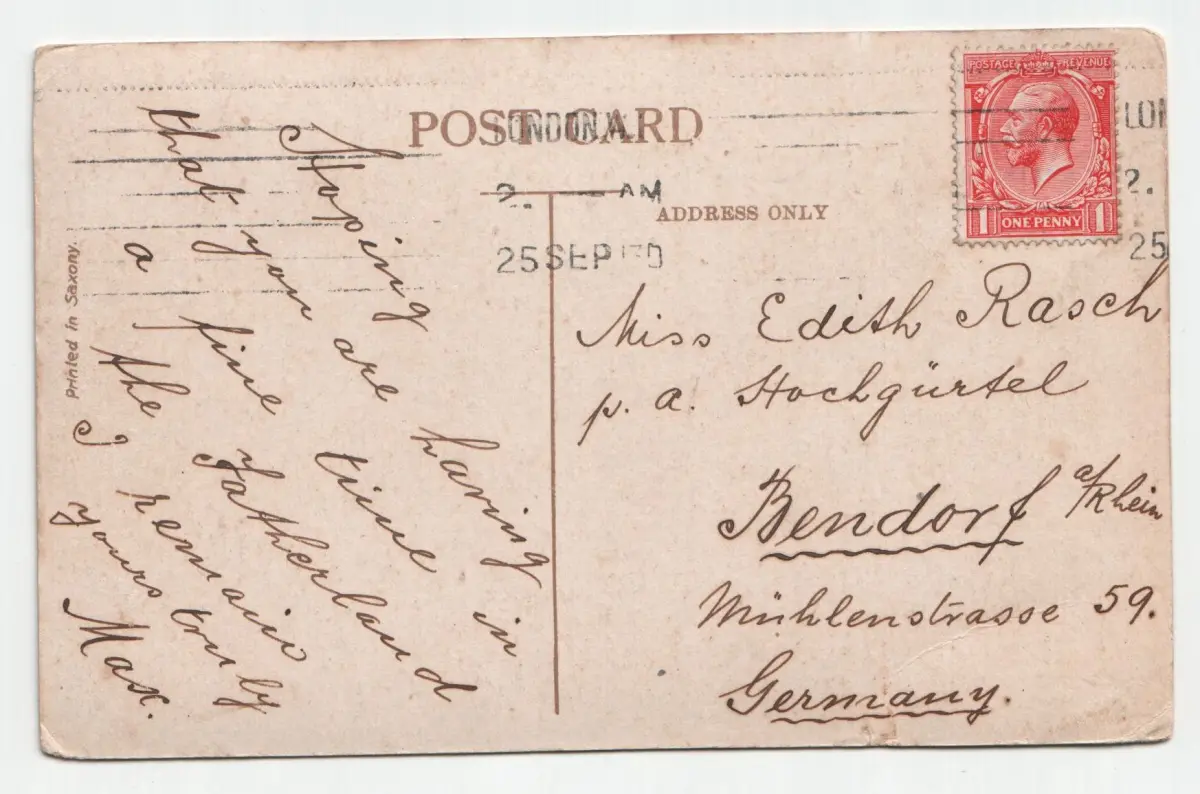 POST CARD
LONDON
2. AM
25 SEP
ADDRESS ONLY
POSTAGE REVENUE
1 ONE PENNY 1
2.
25
Printed in Saxony.
Hoping
that you are having
a fine time in
the Fatherland
I remain
yours truly
Max.
Miss Edith Rasch
p. a. Hochgürtel
Bendorf a/Rhein
Mühlenstrasse 59.
Germany.